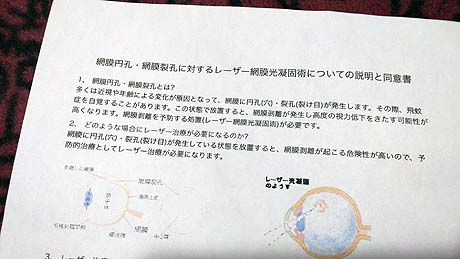 網膜円孔・網膜裂孔に対するレーザー網膜光凝固術についての説明と同意書
1、 網膜円孔・網膜裂孔とは?
多くは近視や年齢による変化が原因となって、網膜に円孔(穴)・裂孔(裂け目)が発生します。その際、飛蚊
症を自覚することがあります。この状態で放置すると、網膜剥離が発生し高度の視力低下をきたす可能性が
高くなります。網膜剥離を予防する処置(レーザー網膜光凝固術)が必要です。
2、 どのような場合にレーザー治療が必要になるのか?
網膜に円孔(穴)・裂孔(裂け目)が発生している状態を放置すると、網膜剥離が起こる危険性が高いので、予
防的治療としてレーザー治療が必要になります。
網膜裂孔
硝子体
網膜
レーザー光凝固
のようす